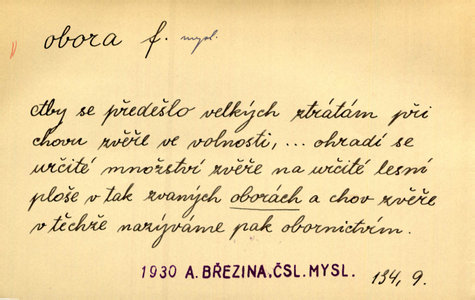 obora f. mysl.
Aby se předešlo velkých ztrátám při
chovu zvěře ve volnosti, ... ohradí se
určité množství zvěře na určité lesní
ploše v tak zvaných oborách a chov zvěře
v těchže nazýváme pak obornictvím.
1930 A. BŘEZINA, ČSL. MYSL. 134, 9.